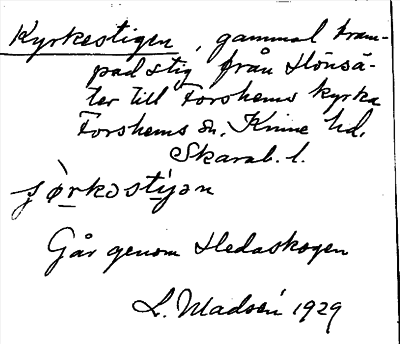 Kyrkestigen, gammal tram-
pad stig från Hönsä-
ter till Forshems kyrka
Forshems sn. Kinne hd.
Skarab. l.
ʃørkəstijən
Går genom Hedaskogen
L. Madsén 1929